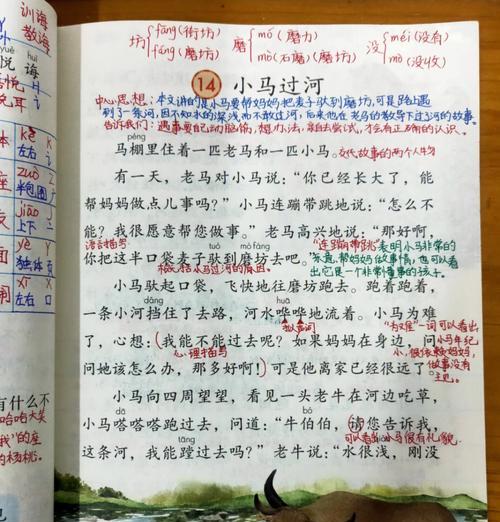 训诲
教诲
yuè huì
悦 诲
悦
兑耳
坊{fāng(街坊) fáng(磨坊)
磨{mó(磨力) mò(石磨)(磨坊)
没{méi(没有) mò(没收)
14 小马过河
中心思想：本文讲的是小马要帮妈妈把麦子驮到磨坊去,可是路上遇
到了一条河,因不知水的深浅而不敢过河,后来他在老马的教导下过了河的故事。
告诉我们：遇事要自己动脑筋,想办法,亲自去尝试,才会有正确的认识。
马棚里住着一匹老马和一匹小马。
交代故事的两个人物
有一天，老马对小马说：“你已经长大了，能
帮妈妈做点儿事吗？”小马连蹦带跳地说：“怎么不
能？我很愿意帮您做事。”老马高兴地说：“那好啊，
语言描写
tuó mò fáng
你把这半口袋麦子驮到磨坊去吧。”
“连蹦带跳”表明小马非常的
乐意帮妈妈做事情,也可以看
出它是一个非常懂事的孩子。
小马过河的原因。
小马驮起口袋，飞快地往磨坊跑去。跑着跑着，
dǎng huā
一条小河挡住了去路，河水哗哗地流着。小马为难
拟声词
了，心想：“我能不能过去呢？如果妈妈在身边，问
“为难”一词可以看出
小马年纪
小,很依赖妈妈,
做事没有
主见。
心理描写
问她该怎么办，那多好啊！”可是他离家已经很远了。
小马向四周望望，看见一头老牛在河边吃草，
小马嗒嗒嗒跑过去，问道：“牛伯伯，请您告诉我，
可以看出小马很有礼貌
tāng
这条河，我能蹚过去吗？”老牛说：“水很浅，刚没
体 kě
左右
座 zuò
半包围
jiāo
上下
yè
独体
xī
左右
有什么不
哈哈大笑
我”的座
的杨桃。